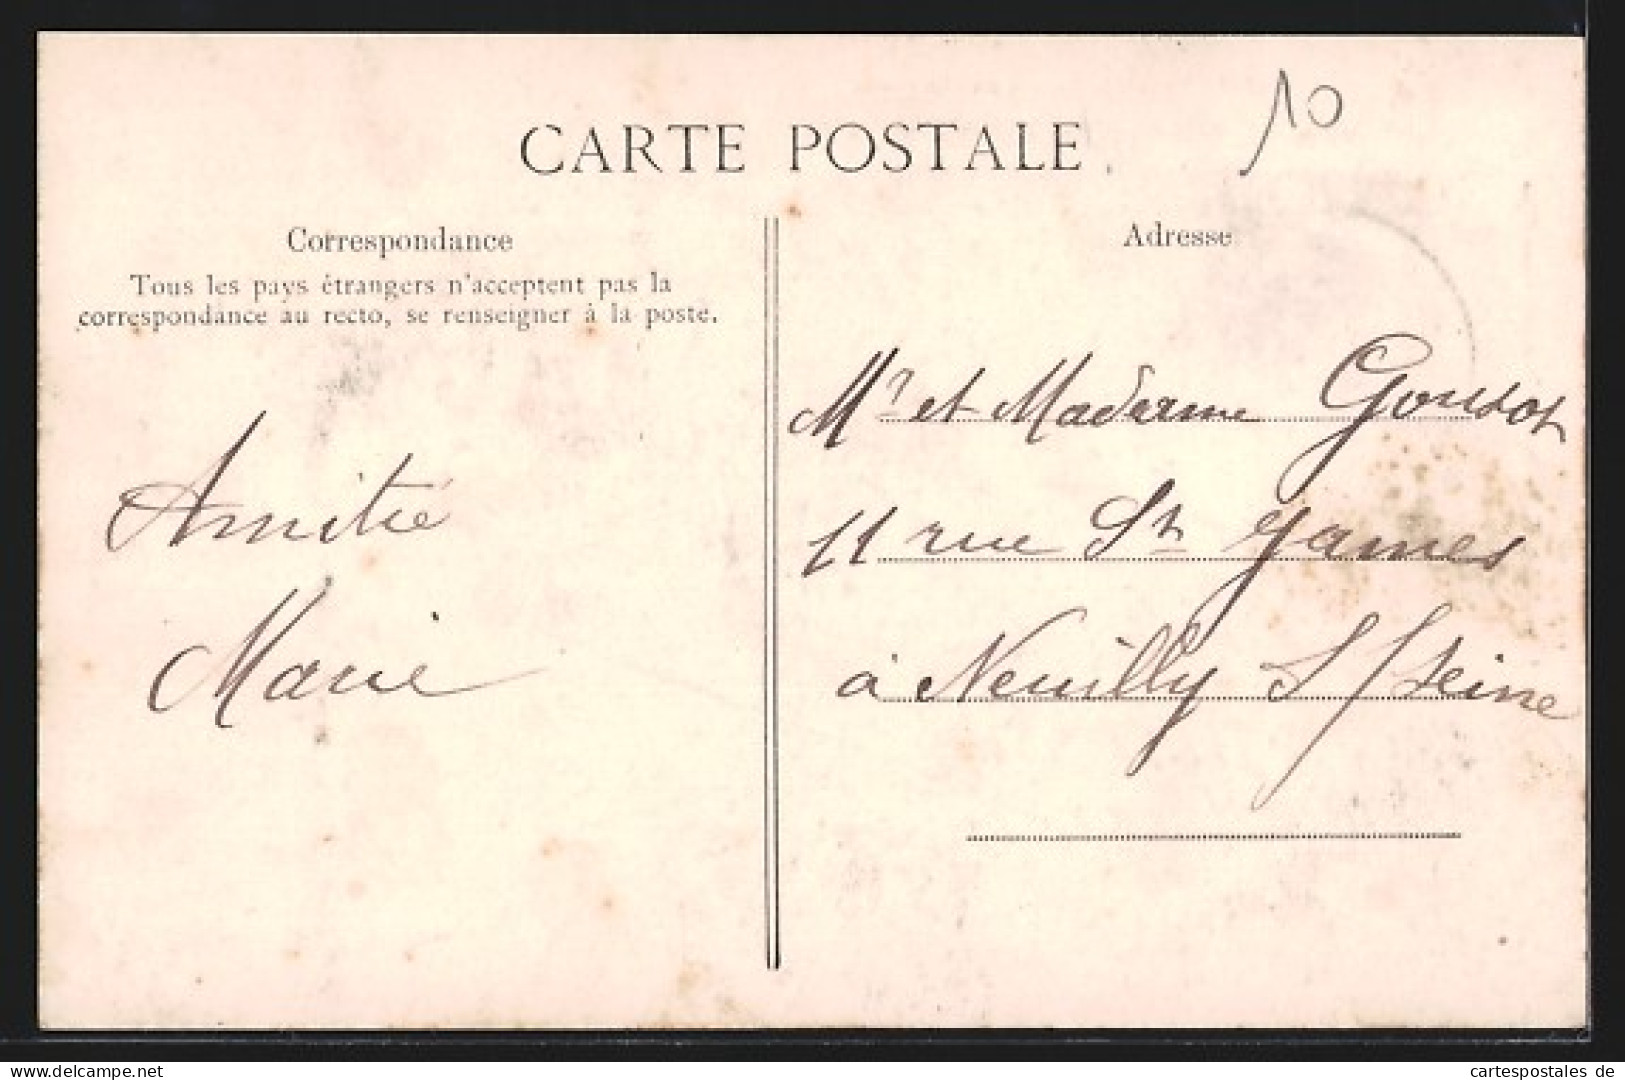 10
CARTE POSTALE
Correspondance
Tous les pays étrangers n'acceptent pas la
correspondance au recto, se renseigner à la poste.
Amitié
Marie
Adresse
Mr et Madame
11 rue St James
à Neuilly S/Seine
www.delcampe.net
cartespostales de